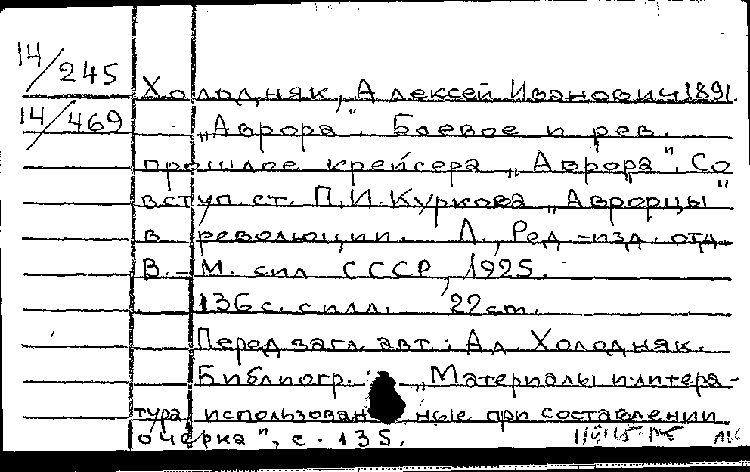 14/245
Холодняк, Алексей Иванович 1891.
14/469
„Аврора". Боевое и рев.
прошлое крейсера „Аврора". Со
вступ. ст. П.И. Куркова „Авророцы"
в революции. Л., Ред.-изд. отд.
В.-М. сил СССР, 1925.
136 с. с илл. 22 cm.
Перед загл. авт.: Ал Холодняк.
Библиогр.: „Материалы и литера-
тура использованные при составлении
очерка", с. 135.